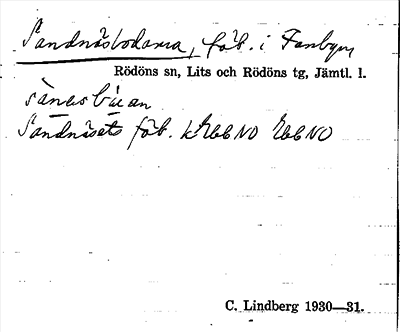 Sandnäsbodarna, fäb. i Fanbyn
Rödöns sn, Lits och Rödöns tg, Jämtl. l.
sànɑsbúan
Sandnäsets fäb.
C. Lindberg 1930—31.